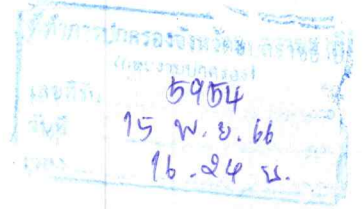 ที่ทำการปกครองจังหวัด
เลขที่รับ 5954
วันที่ 15 พ.ย. 66
เวลา 16.24 น.